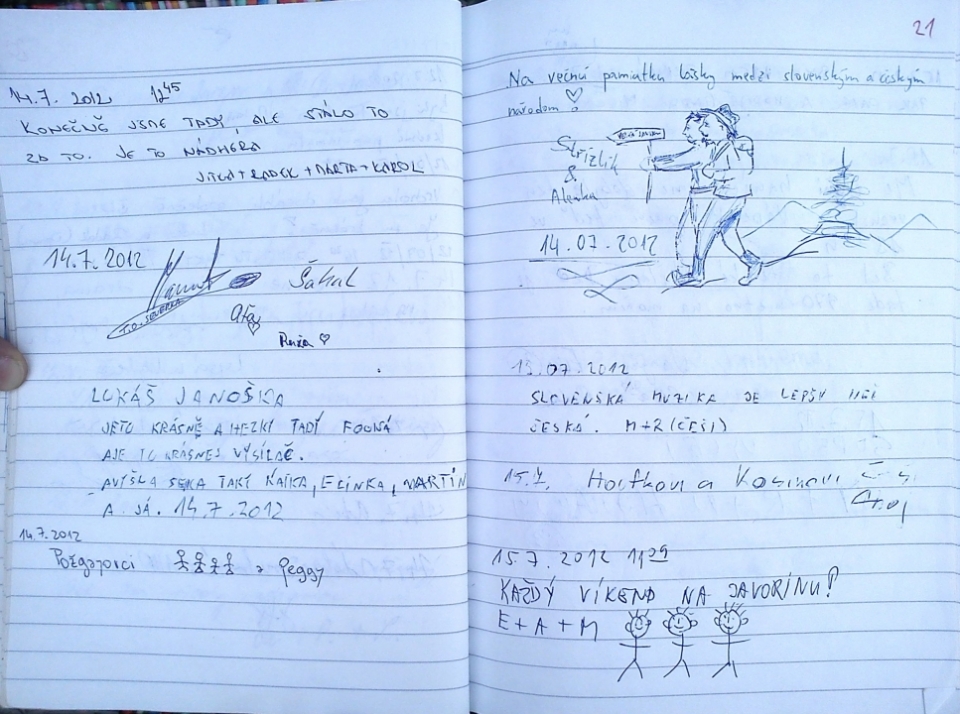 14.7. 2012 12⁴⁵
KONEČNĚ JSME TADY, ALE STÁLO TO
ZA TO. JE TO NÁDHERA
JITKA + RADEK + MARTA + KAROL
14.7.2012
Šakal
T.O. SEVERKA
Ruža ♡
LUKÁŠ JANOŠKA
JETO KRÁSNĚ A HEZKI TADÝ FOUNÁ
AJE TO KRÁSNEJ VYSÍLAČ.
AVYŠLA SEKA TAKÍ KAČKA, ELINKA, MARTIN
A JÁ. 14.7.2012
14.7.2012
Požgajovci a Peggy
21
Na večnú pamiatku lásky medzi slovenským a českým
národom
Střízlík
&
Alenka
14.07.2012
13.07.2012
SLOVENSKÁ MUZIKA JE LEPŠÍ NEŽ
ČESKÁ. M+R (ČEŠI)
15.7.
a
Ahoj
15.7.2012 11²⁹
KAŽDÝ VÍKEND NA JAVORINU!
E + A + M